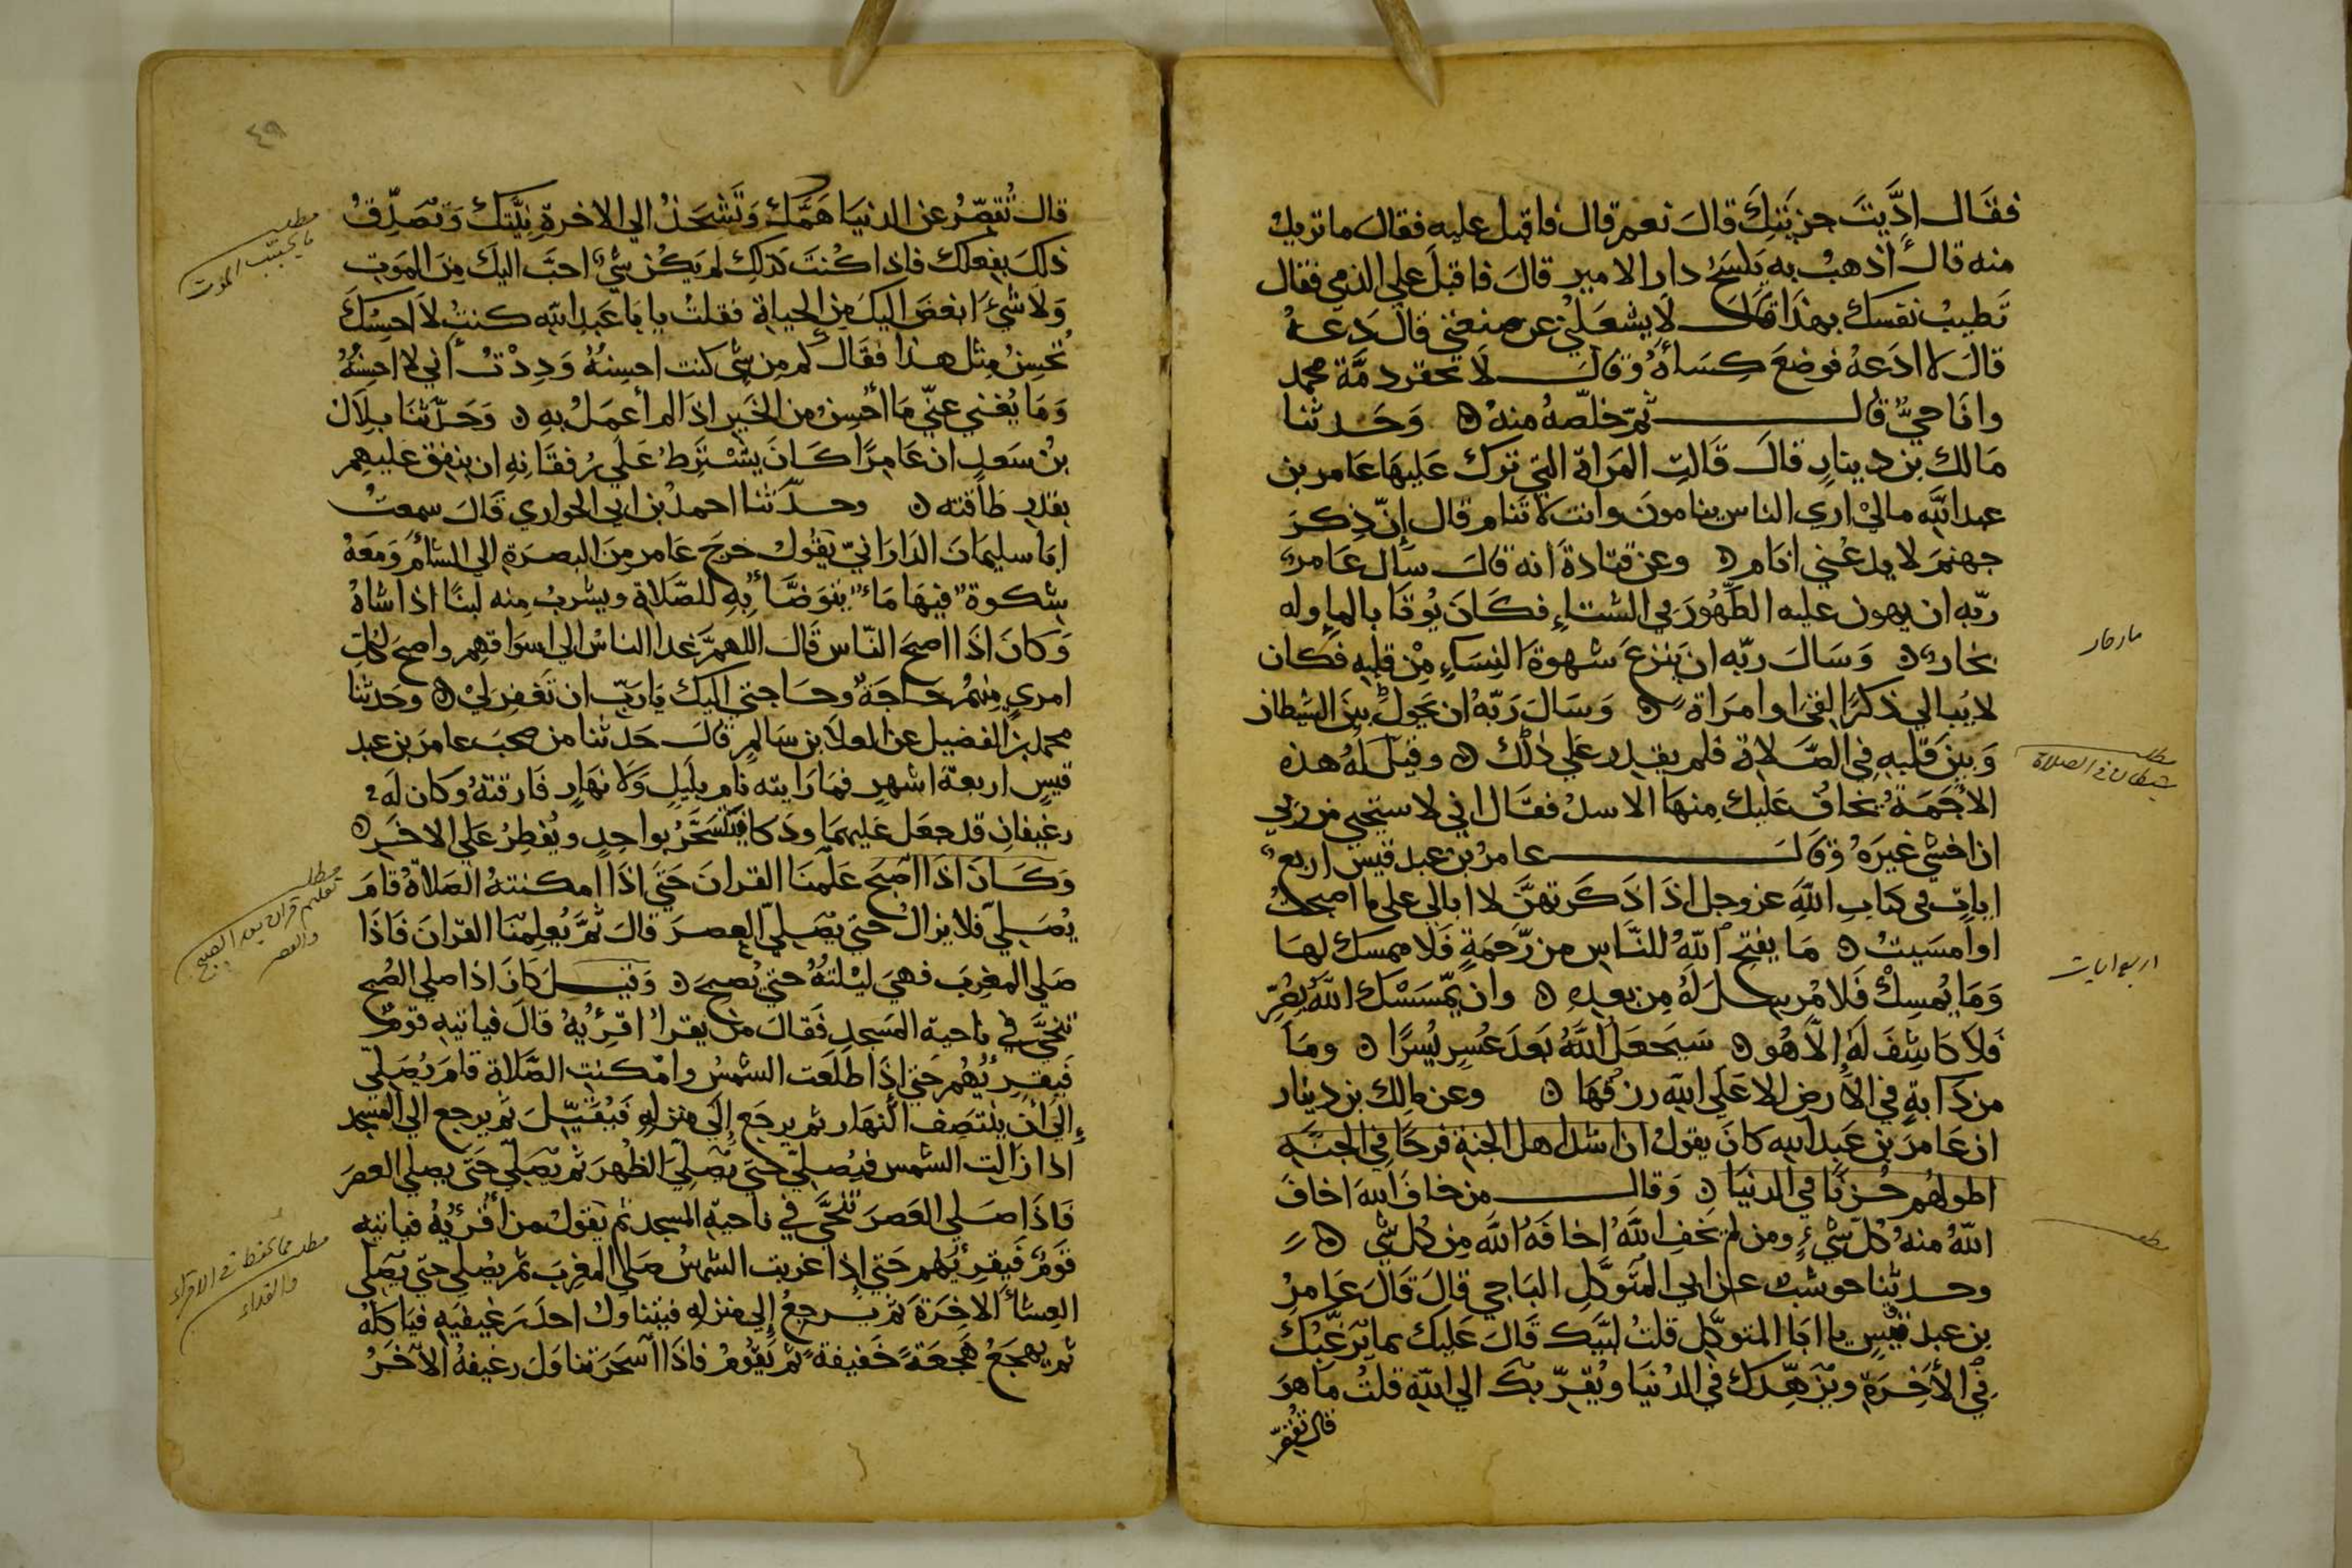 فقَال ادَّيتَ جزيَتكَ قالَ نعم قال فاقبل عليه فقالَ ما تريدُ
منه قال أذهبُ به يكسَحُ دار الامير قالَ فاقبلَ علي الذمي فقال
تَطيبُ نفسك بهذَا قالَ لَا يشغلني عن صنعتي قالَ دَعهُ
قالَ لا ادَعهُ فوضعَ كِسَاهُ وقالَ لَا تحقر دمَّة محمد
وانَا حيٌّ قال ثمّ خلّصهُ منهُ ۞ وَحَدثنا
مَالك بن دينارٍ قالَ قَالتِ المَراة التي ترك عَليهَا عَامر بن
عبد اللّه ما ليْ اري الناس ينامونَ وانت لا تَنام قال إنّ ذِكرَ
جهنمَ لا يدعْني انَام ۞ وعن قتادةَ أنه قالَ سَال عَامرٌ
ربّه ان يهون عليه الطَّهُورَ في الشتاءِ فكَانَ يُوتَا بالماءِ وله
بخارٌ ۞ وَسَالَ ربّه ان يَنزعَ شهوةَ النِسَاءِ مِنْ قلبهِ فكان
لا يُبالي ذكرًا لقيَ او امرَاة ۞ وَسَالَ رَبّهُ ان يَحولَ بينَ الشيطان
وَبينَ قَلبهِ في الصَّلاة فلم يقدر عَلي ذٰلك ۞ وقيلَ لهُ هذه
الأجَمَةُ يخافُ عَليك منهَا الاسدُ فقال اني لاستحيي من ربي
ان اخشي غيرَهُ وَقالَ عامرُ بن عبد قيس اربعُ
اياتٍ في كتابِ اللّهِ عز وجل اذَا ذَكَرتهنَّ لا ابالي علي ما اصبحتُ
اوامسَيتُ ۞ مَا يفتحِ اللّهُ للنَّاسِ من رَّحمَةٍ فَلا ممسك لهَا
وَمَا يُمسِكْ فَلا مُرسِلَ لَهُ مِن بعدهِ ۞ وان يَّمسَسْك اللّهُ بضُرٍّ
فَلا كَاشِفَ لَهُ إلّا هُو ۞ سَيَجعَلُ اللَّهُ بَعدَ عُسرٍ يُسرًا ۞ ومَا
من دَابةٍ في الأرض الا عَلَي اللّه رزقُهَا ۞ وعن مالك بن دينار
ان عَامرَ بن عَبد اللّه كانَ يقولُ ان اشد اهل الجنة فرحًا في الجنَّة
اطولهُم حُزنًا في الدنيَا ۞ وَقال من خافَ اللّهَ اخافَ
اللّهُ منهُ كُلّ شَيءٍ ومن لم يَخفِ اللّهَ اخافَهُ اللّهُ مِن كُلّ شَيٍ ۞
وحدثنا حوشب عن ابي المتوكّلِ النَاجي قالَ قَالَ عَامرُ
بن عبد قيْسٍ يا ابَا المتوكّلِ قلتُ لبّيَك قَالَ عَليك بما يُرَغّبُك
في الأخِرَةِ ويُزهّدك في الدُنيَا ويُقرّبكَ الي اللّهِ قلتُ ما هوَ
قال تُقصّر
مار حار
مطلب
شيطان في الصلاة
اربع ايات
مطلب
٤٩
قال تُقصّرُ عن الدنيَا هَمَّكَ وَتَشحَذُ الي الاخرةِ نِيَّتكَ وَتصَدِّقُ
ذلكَ بفعلك فاذا كُنتَ كذلكِ لم يَكن شيٌ احبَّ اليكَ مِنَ الموَتِ
وَلا شَيءَ ابغضَ اليكَ من الحياةِ فقلتُ يا بَا عَبد اللّه كنتُ لا احسِبُكَ
تُحسِنُ مِثل هذَا فقال كم مِن شي كنت احسِنهُ وَدِدْتُ أني لا احسِنُهُ
وَمَا يُغني عنّي مَا أُحْسِنُ من الخَيرِ اذَا لم أعمَلُ بهِ ۞ وَحَدّثنَا بلَال
بن سَعدٍ ان عَامِرًا كَانَ يشْترَطُ عَلَي رُفقَائهِ ان ينفِق عَليهِم
بقدرِ طَاقته ۞ وحدّثنا احمدُ بن ابي الحواري قَالَ سمعتُ
ابَا سليمَانَ الدَارَانيّ يَقولُ خرجَ عَامر مِنَ البصرَةِ الي الشامِ وَمَعَهُ
شكوة فيهَا مَاء يتوَضَّا بِهِ للصَّلاةِ ويشربُ منه لبنًا اذا شاهُ
وَكَانَ اذَا اصبحَ النّاس قَالَ اللهمَّ غدا الناسُ الي اسوَاقهِم واصبحَ لكلِ
امرٍي منهُم حَاجَةٌ وحَاجتي اليكَ يَا ربِّ ان تَغفِرَ ليْ ۞ وحَدثنا
محمد بن الفضيل عن العلا بن سَالمٍ قالَ حَدثنا من صحبَ عامرَ بن عبد
قيسٍ اربعةَ اشهرٍ فمَا رَايته نَام بليَلٍ وَلا نهَارٍ فَارقتهُ وكان لَهُ
رغيفانِ قد جعَل عَليهمَا ودَكا فيتَسَحَّرُ بواحدٍ ويُفطِرُ عَلَي الاخَرِ ۞
وَكَانَ اذَا اصْبَحَ عَلّمنَا القرانَ حَتّي اذَا امكنتهُ الصَّلاةُ قامَ
يُصَلّي فلا يزالُ حتي يصَلّي العصرَ قالَ ثمَّ يُعلِمّنَا القرانَ فَاذَا
صَلي المغرِبَ فهيَ ليْلتهُ حتي يُصبحَ ۞ وَقيلَ كَانَ اذا صلي الصُبح
تَنحَّي في ناحية المَسجدِ فَقالَ من يَقرأُ اقرِئهُ قالَ فياتيهِ قومٌ
فَيقرِئهُم حَتي إذَا طلَعَت الشمسُ وامكنت الصَّلاة قامَ يُصَلّي
إلي أن يَنتَصِف النهَار ثم يرجَع إلَي منزلهِ فَيُقَيّلَ ثم يرجع الي المسجد
اذا زالتِ الشمس فيُصلّي حتي يُصَلّيَ الظهرَ ثم يصَلّي حَتّي يصلي العصرَ
فَاذَا صَلي العَصرَ تنَحَّي في ناحيةِ المسجدِ ثم يَقولُ من أقرئهُ فياتيه
قَومٌ فَيقرِئهم حَتي إذا غربت الشمسُ صَلي المغرِبَ ثم يصُلّي حتي يُصَلي
العِشاءَ الاخِرَةَ ثم يُرجعُ إلي منزلهِ فيتناولُ احدَ رَغيفيَهِ فيَاكلهُ
ثم يهجَعُ هجَعَةً خَفيفةً ثم يَقوُمُ فاذَا اسَحَرَ تناوَلَ رغيفهُ الأخَرُ
مطلب
ما يحبب الموت
مطلب
تعليم قران بعد الصبح
والعصر
مطلب